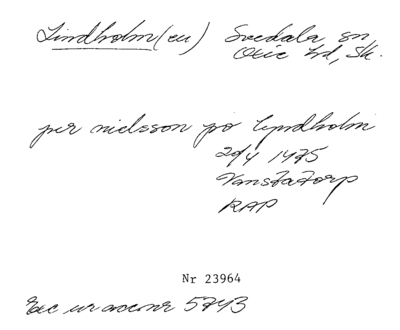 Lindholm(en) Svedala sn
Oxie hd, Sk.
per nielsson po lyndholm
20/4 1475
Vanstatorp
RAP
Nr 23964
Exc ur accnr 5743